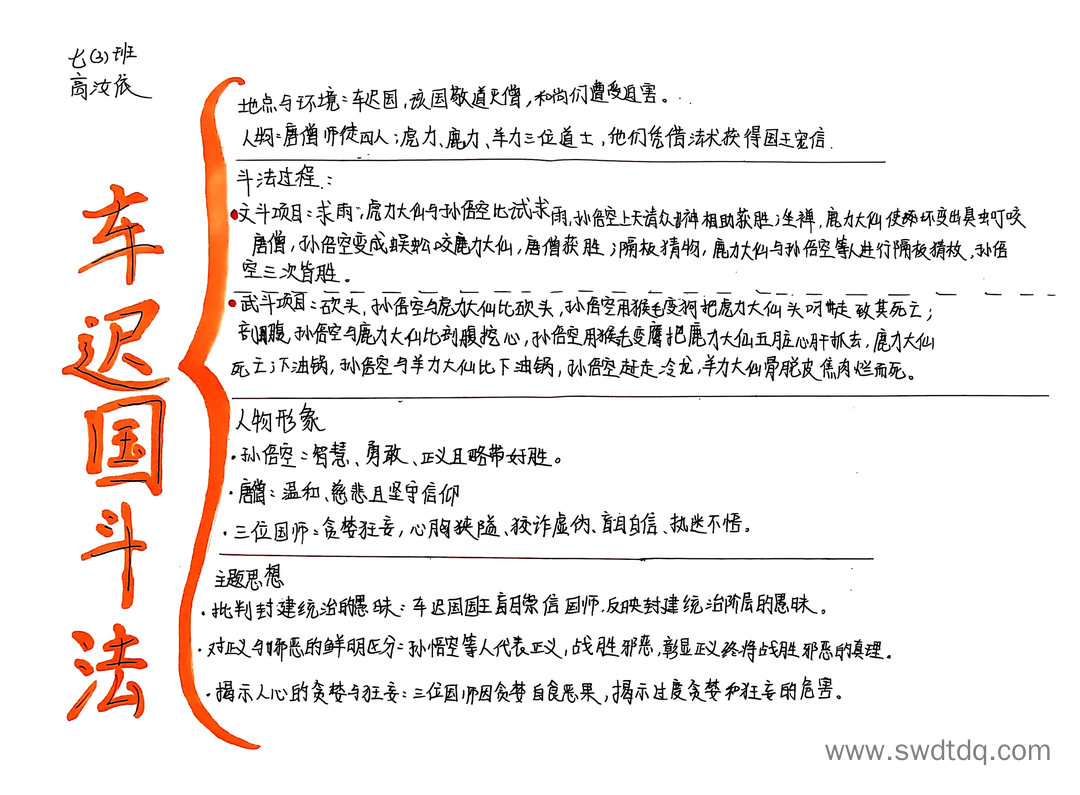 七(3)班
高汝依
车迟国斗法
地点与环境：车迟国，该国敬道灭僧，和尚们遭受迫害。
人物：唐僧师徒四人；虎力、鹿力、羊力三位道士，他们凭借法术获得国王宠信.
斗法过程：
文斗项目：求雨，虎力大仙与孙悟空比试求雨，孙悟空上天请众邪神相助获胜；坐禅，鹿力大仙使 坏变出臭虫叮咬
唐僧，孙悟空变成蜈蚣咬鹿力大仙，唐僧获胜；隔板猜物，鹿力大仙与孙悟空等人进行隔板猜枚，孙悟
空三次皆胜。
武斗项目：砍头，孙悟空与虎力大仙比砍头，孙悟空用猴毛变狗把虎力大仙头叼走致其死亡；
剖腹，孙悟空与鹿力大仙比剖腹挖心，孙悟空用猴毛变鹰把鹿力大仙五脏心肝抓去，鹿力大仙
死亡；下油锅，孙悟空与羊力大仙比下油锅，孙悟空赶走冷龙，羊力大仙骨脱皮焦肉烂而死。
人物形象
·孙悟空：智慧、勇敢、正义且略带好胜。
·唐僧：温和、慈悲且坚守信仰
·三位国师：贪婪狂妄，心胸狭隘、狡诈虚伪、盲目自信、执迷不悟。
主题思想
·批判封建统治的愚昧：车迟国国王盲目崇信国师，反映封建统治阶层的愚昧。
·对正义与邪恶的鲜明区分：孙悟空等人代表正义，战胜邪恶，彰显正义终将战胜邪恶的真理。
·揭示人心的贪婪与狂妄：三位国师因贪婪自食恶果，揭示过度贪婪和狂妄的危害。
www.swdtdq.com